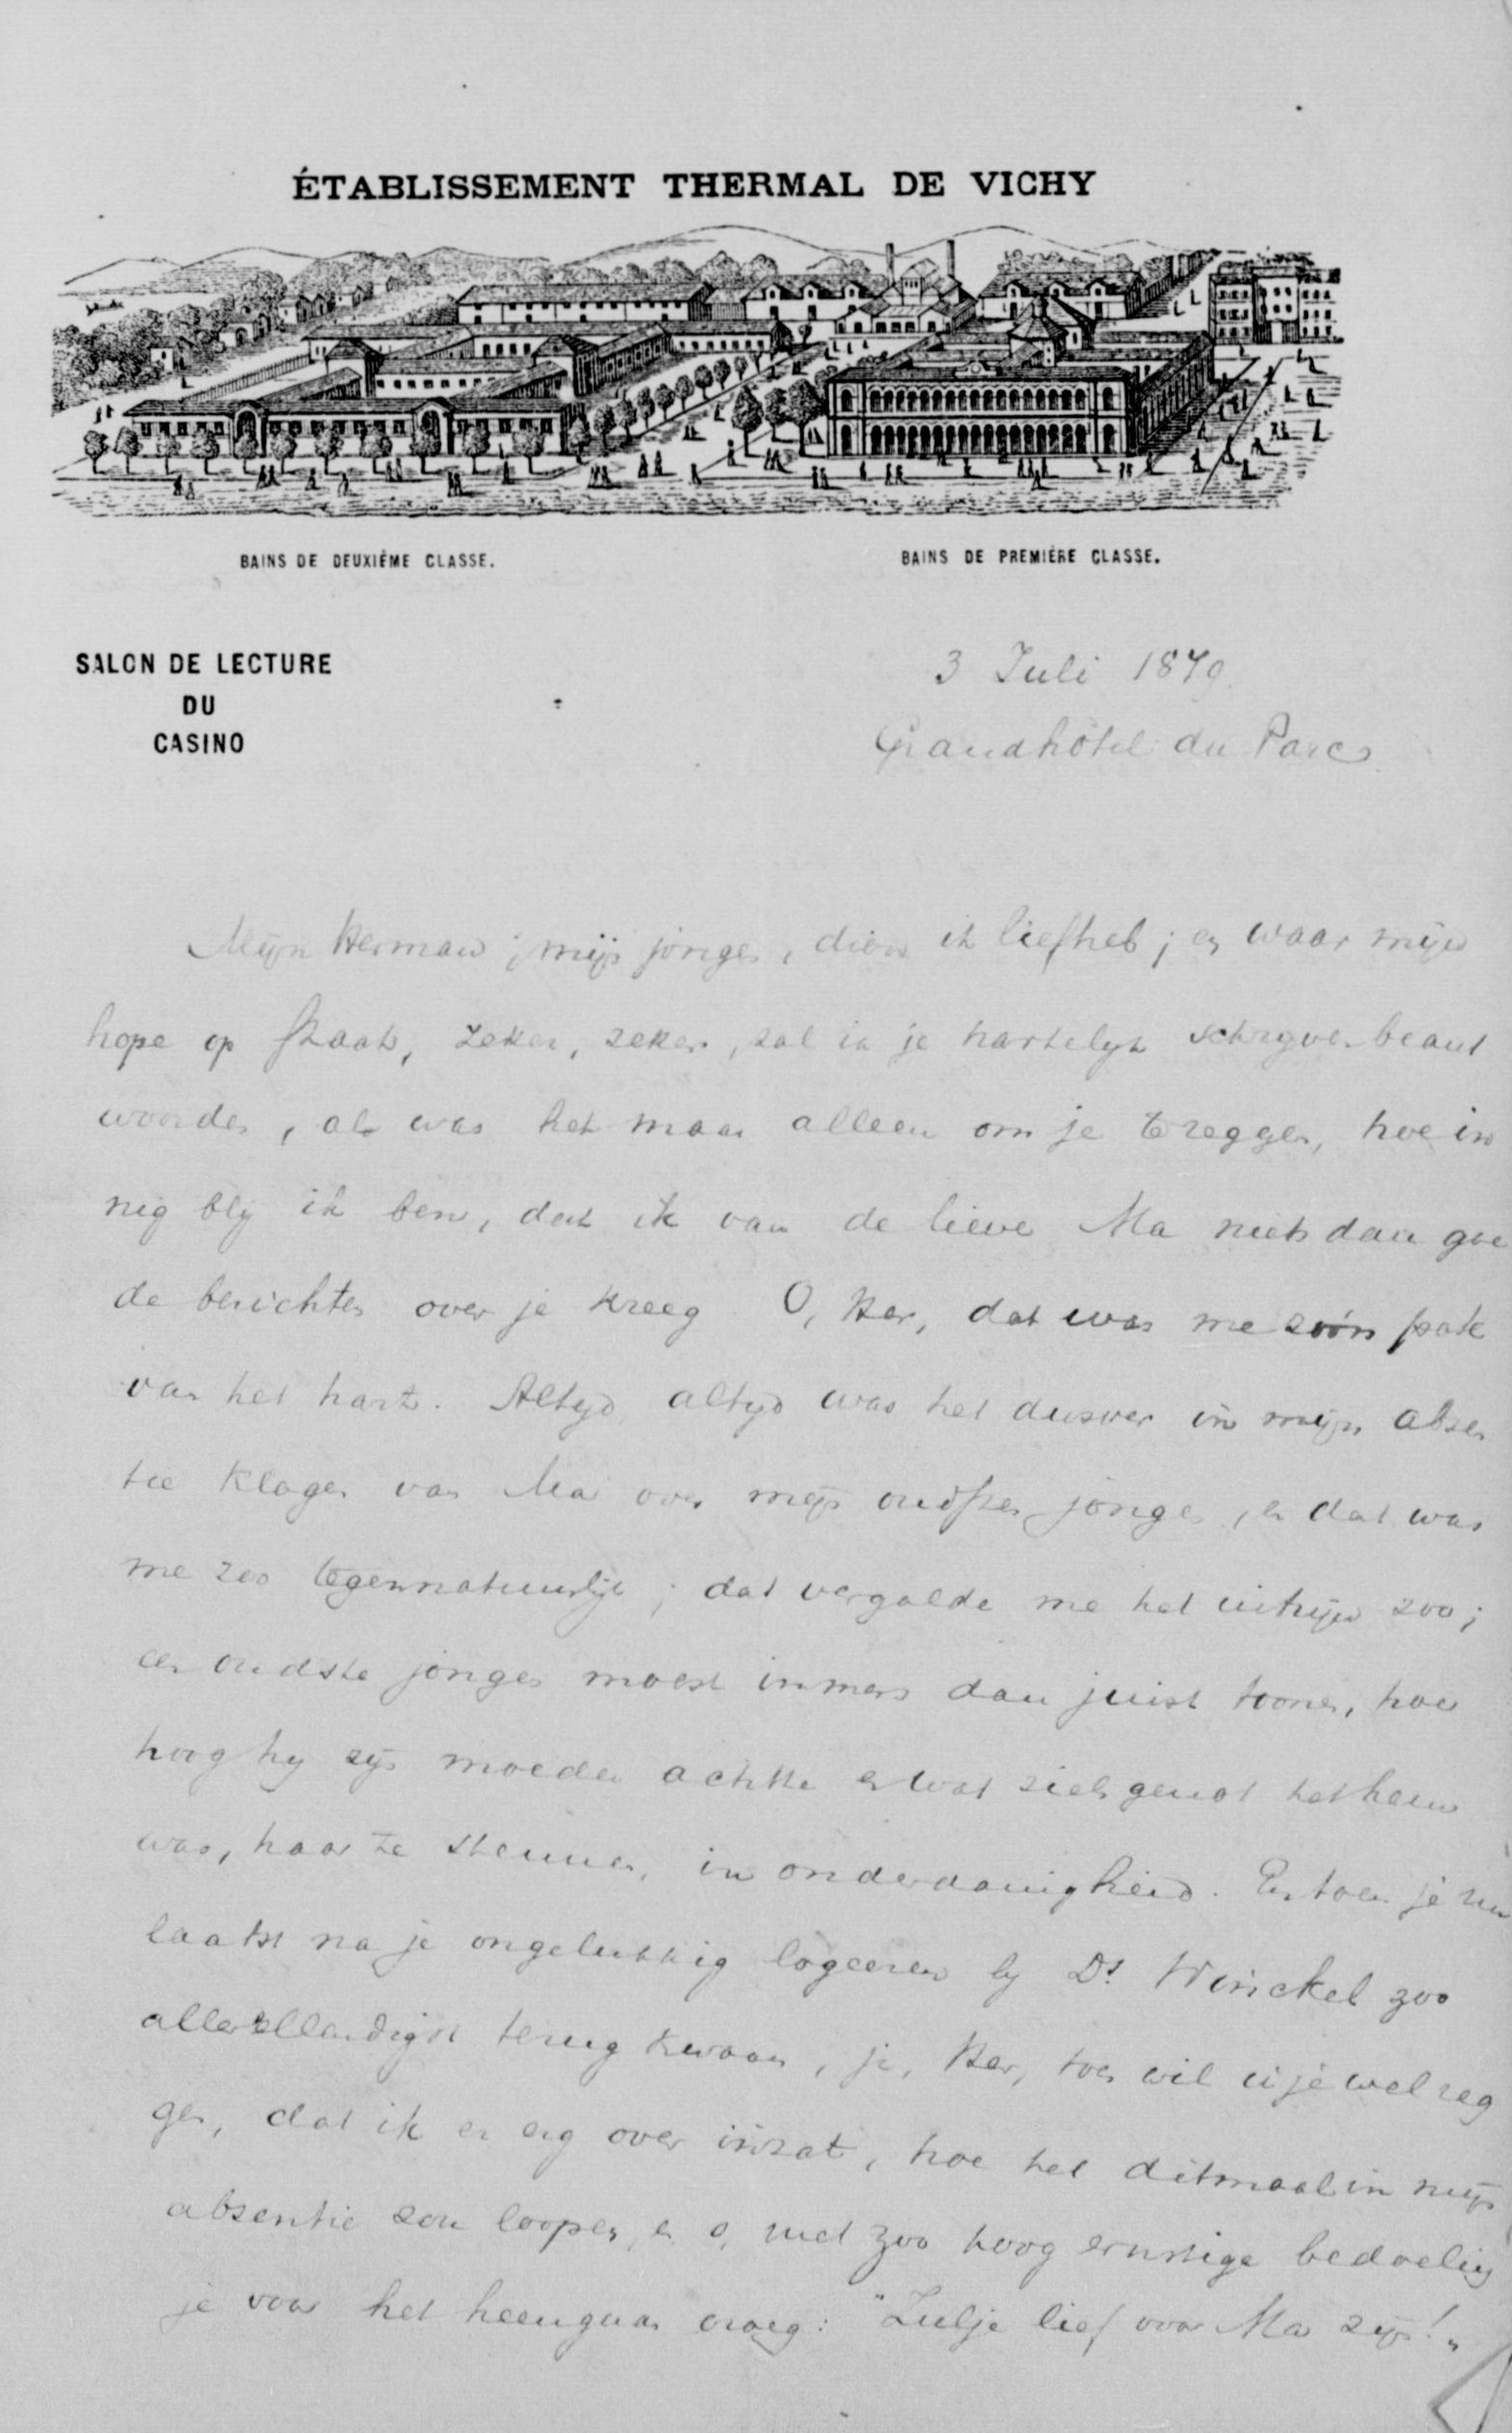 ÉTABLISSEMENT THERMAL DE VICHY
BAINS DE DEUXIÈME CLASSE.
BAINS DE PREMIÈRE CLASSE.
SALON DE LECTURE
DU
CASINO
3 Juli 1879.
Grandhôtel du Parc
Mijn Herman, mijn jongen, dien ik liefheb; en waar mijn
hope op staat, zeker, zeker, zal ik je hartelijk schrijven beant
woorden, al was het maar alleen om je te zeggen, hoe in
nig blij ik ben, dat ik van de lieve Ma niets dan goe
de berichten over je kreeg. O, Her, dat was me zóón pak
van het hart. Altijd, altijd was het dusver in mijn absen
tie klagen van Ma over mijn oudsten jongen, en dat was
me zoo tegennatuurlijk; dat vergalde me het uitzijn zoo;
een oudste jongen moest immers dan juist toonen, hoe
hoog hij zijn moeder achtte en wat zielsgenot het hem
was, haar te steunen, in onderdanigheid. En toen je nu
laatst na je ongelukkig logeeren bij Ds Winckel zoo
allerellendigst terug kwaam, ja, Her, toen wil ik je wel zeg
gen, dat ik er erg over inzat, hoe het ditmaal in mijn
absentie zou loopen, en o, met zoo hoog ernstige bedoeling
je voor het heengaan vroeg: "Zulje lief voor Ma zijn!"